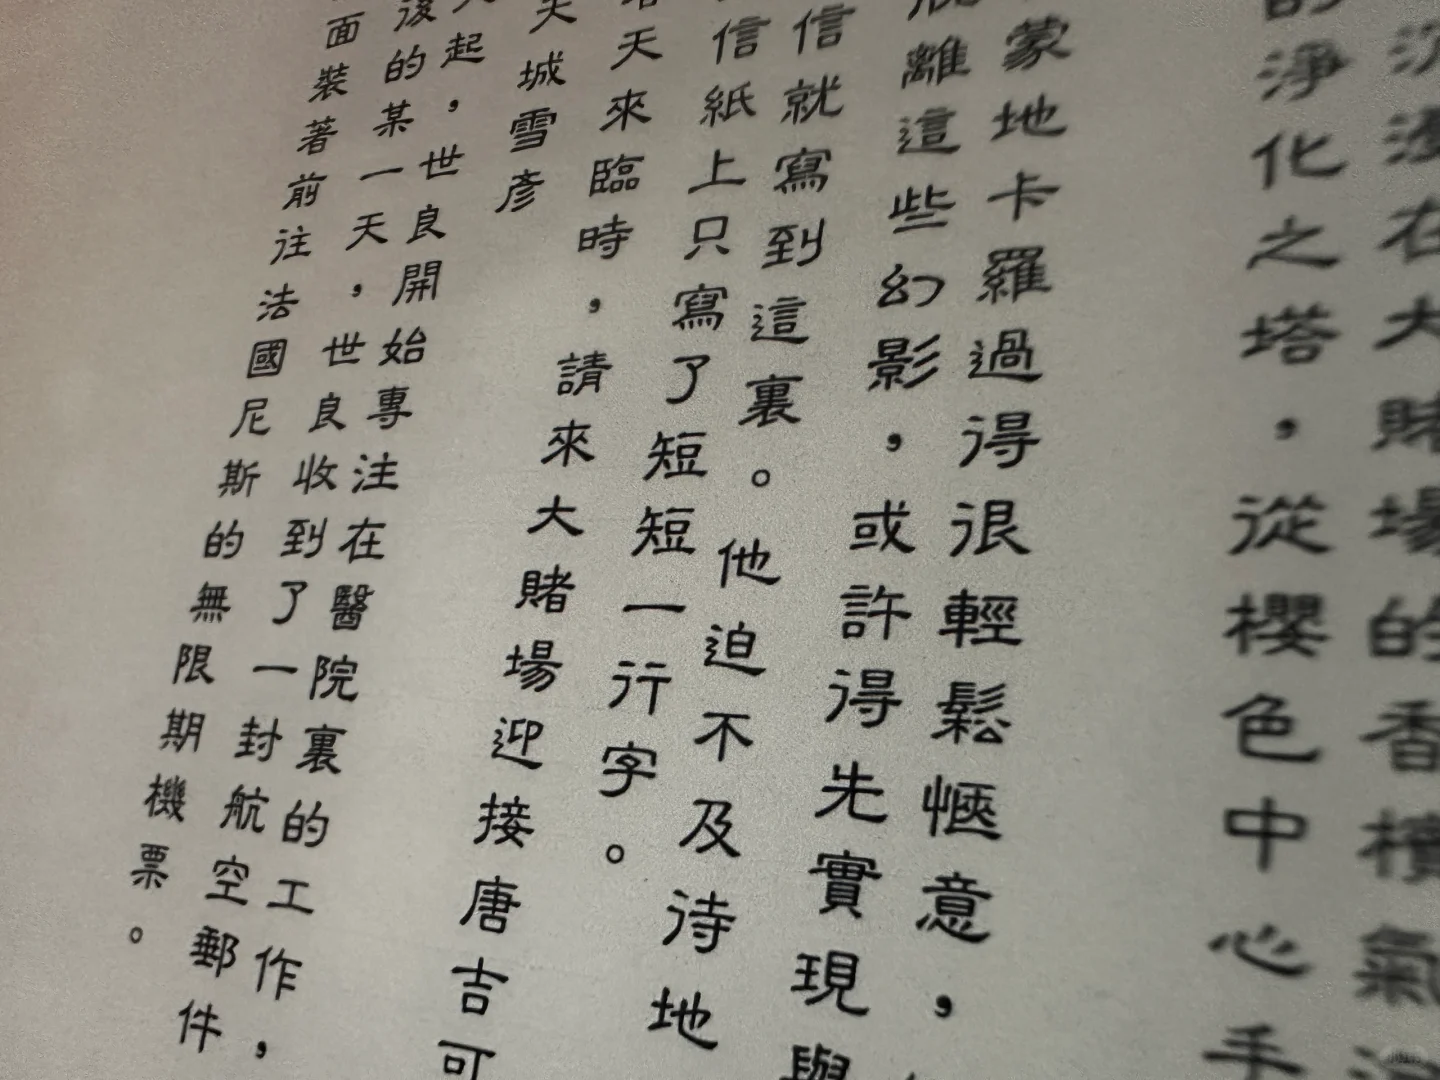 沉浸在大賭場的香檳氣
的淨化之塔，從櫻色中心手
蒙地卡羅過得很輕鬆愜意，
脫離這些幻影，或許得先實現與
信就寫到這裏。他迫不及待地
信紙上只寫了短短一行字。
塔天來臨時，請來大賭場迎接唐吉可
天城雪彥
起，世良開始專注在醫院裏的工作，
後的某一天，世良收到了一封航空郵件
面裝著前往法國尼斯的無限期機票。